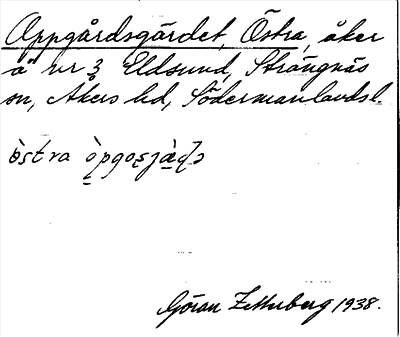 Oppgårdsgärdet, Östra, åker
å nr 3 Eldsund, Strängnäs
sn, Åkers hd, Södermanlands l.
östra
Göran Zetterberg 1938.